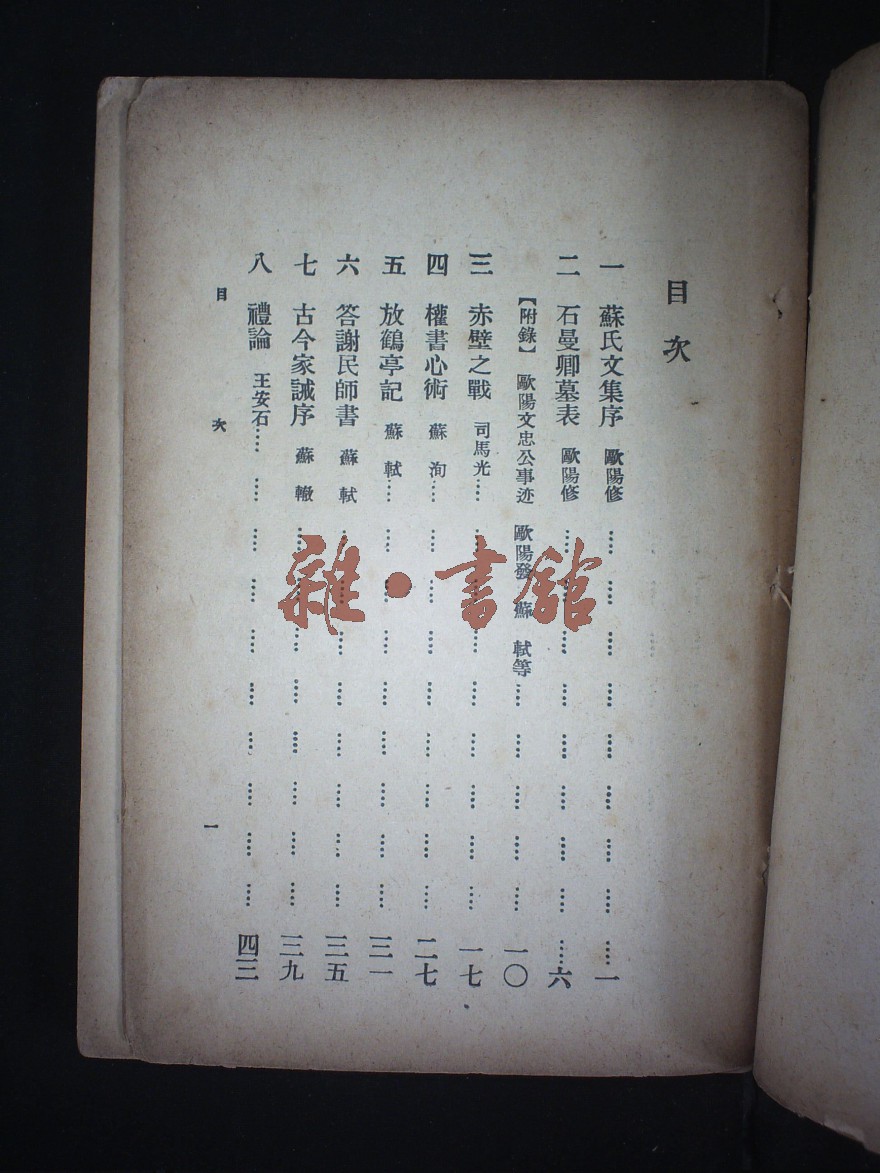 目次
一 蘇氏文集序 歐陽修 一
二 石曼卿墓表 歐陽修 六
【附錄】 歐陽文忠公事迹 歐陽發 蘇軾等 一〇
三 赤壁之戰 司馬光 一七
四 權書心術 蘇洵 二七
五 放鶴亭記 蘇軾 三一
六 答謝民師書 蘇軾 三五
七 古今家誡序 蘇轍 三九
八 禮論 王安石 四三
目次 一
雜·書館